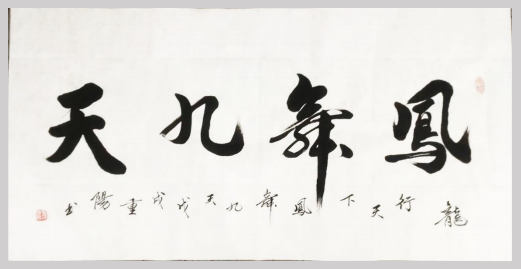 鳳舞九天
龍行天下鳳舞九天戊戌重陽书